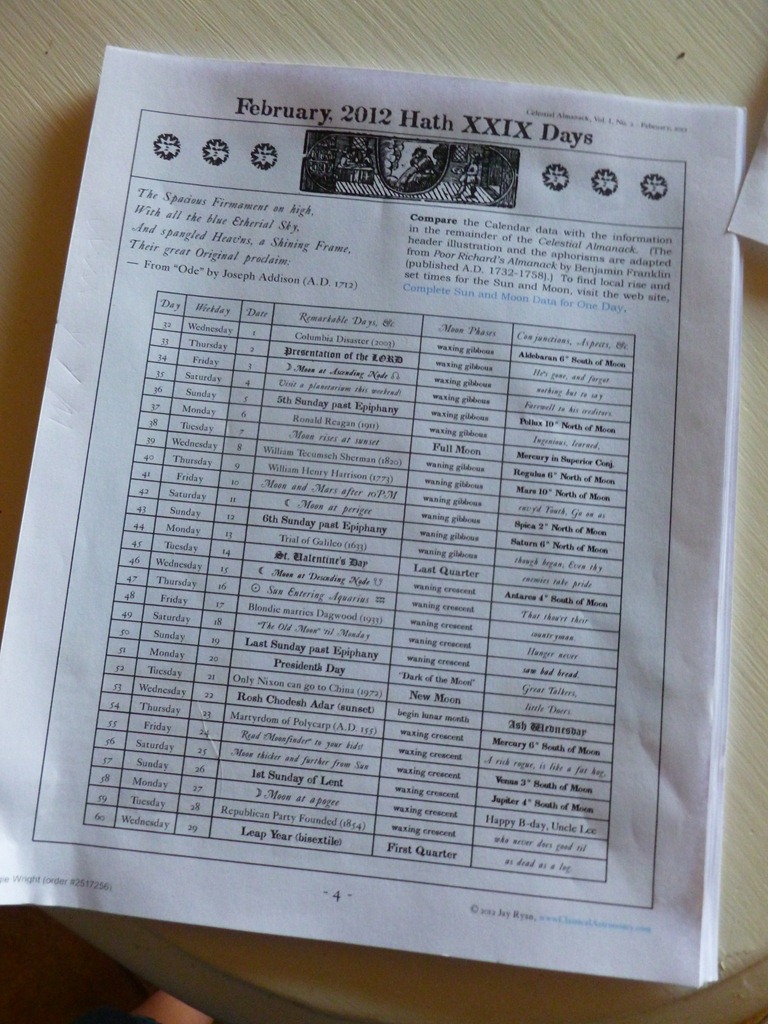 Celestial Almanack, Vol. I, No. 2 - February, 2012
February, 2012 Hath XXIX Days
The Spacious Firmament on high,
With all the blue Etherial Sky,
And spangled Heav'ns, a Shining Frame,
Their great Original proclaim:
— From "Ode" by Joseph Addison (A.D. 1712)
Compare the Calendar data with the information
in the remainder of the Celestial Almanack. (The
header illustration and the aphorisms are adapted
from Poor Richard's Almanack by Benjamin Franklin
(published A.D. 1732-1758).) To find local rise and
set times for the Sun and Moon, visit the web site,
Complete Sun and Moon Data for One Day.
Day Weekday Date Remarkable Days, &c. Moon Phases Conjunctions, Aspects, &c
32 Wednesday 1 Columbia Disaster (2003) waxing gibbous Aldebaran 6° South of Moon
33 Thursday 2 Presentation of the LORD waxing gibbous He's gone, and forgot
34 Friday 3 ☽ Moon at Ascending Node ☊ waxing gibbous nothing but to say
35 Saturday 4 Visit a planetarium this weekend! waxing gibbous Farewell to his creditors.
36 Sunday 5 5th Sunday past Epiphany waxing gibbous Pollux 10° North of Moon
37 Monday 6 Ronald Reagan (1911) waxing gibbous Ingenious, learned,
38 Tuesday 7 Moon rises at sunset Full Moon Mercury in Superior Conj.
39 Wednesday 8 William Tecumseh Sherman (1820) waning gibbous Regulus 6° North of Moon
40 Thursday 9 William Henry Harrison (1773) waning gibbous Mars 10° North of Moon
41 Friday 10 Moon and Mars after 10PM waning gibbous envy'd Youth, Go on as
42 Saturday 11 ☾ Moon at perigee waning gibbous Spica 2° North of Moon
43 Sunday 12 6th Sunday past Epiphany waning gibbous Saturn 6° North of Moon
44 Monday 13 Trial of Galileo (1633) waning gibbous though began, Even thy
45 Tuesday 14 St. Valentine's Day Last Quarter enemies take pride
46 Wednesday 15 ☾ Moon at Desending Node ☋ waning crescent Antares 4° South of Moon
47 Thursday 16 ☉ Sun Entering Aquarius ♒ waning crescent That thou'rt their
48 Friday 17 Blondie marries Dagwood (1933) waning crescent countryman.
49 Saturday 18 "The Old Moon" 'til Monday waning crescent Hunger never
50 Sunday 19 Last Sunday past Epiphany waning crescent saw bad bread.
51 Monday 20 Presidents Day "Dark of the Moon" Great Talkers,
52 Tuesday 21 Only Nixon can go to China (1972) New Moon little Doers.
53 Wednesday 22 Rosh Chodesh Adar (sunset) begin lunar month Ash Wednesday
54 Thursday 23 Martyrdom of Polycarp (A.D. 155) waxing crescent Mercury 6° South of Moon
55 Friday 24 Read "Moonfinder" to your kids! waxing crescent A rich rogue, is like a fat hog,
56 Saturday 25 Moon thicker and further from Sun waxing crescent Venus 3° South of Moon
57 Sunday 26 1st Sunday of Lent waxing crescent Jupiter 4° South of Moon
58 Monday 27 ☽ Moon at apogee waxing crescent Happy B-day, Uncle Lee
59 Tuesday 28 Republican Party Founded (1854) waxing crescent who never does good til
60 Wednesday 29 Leap Year (bisextile) First Quarter as dead as a log.
- 4 -
pe Wright (order #2517256)
© 2012 Jay Ryan, www.ClassicalAstronomy.com